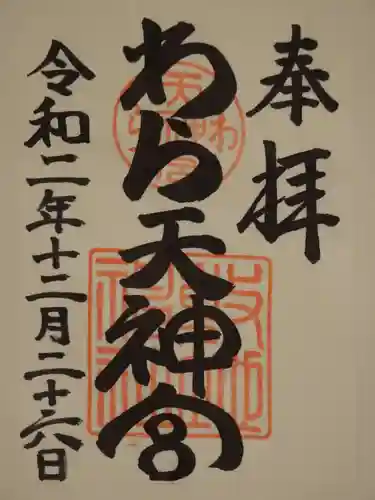 奉拝
わら天神宮
令和二年十二月二十六日